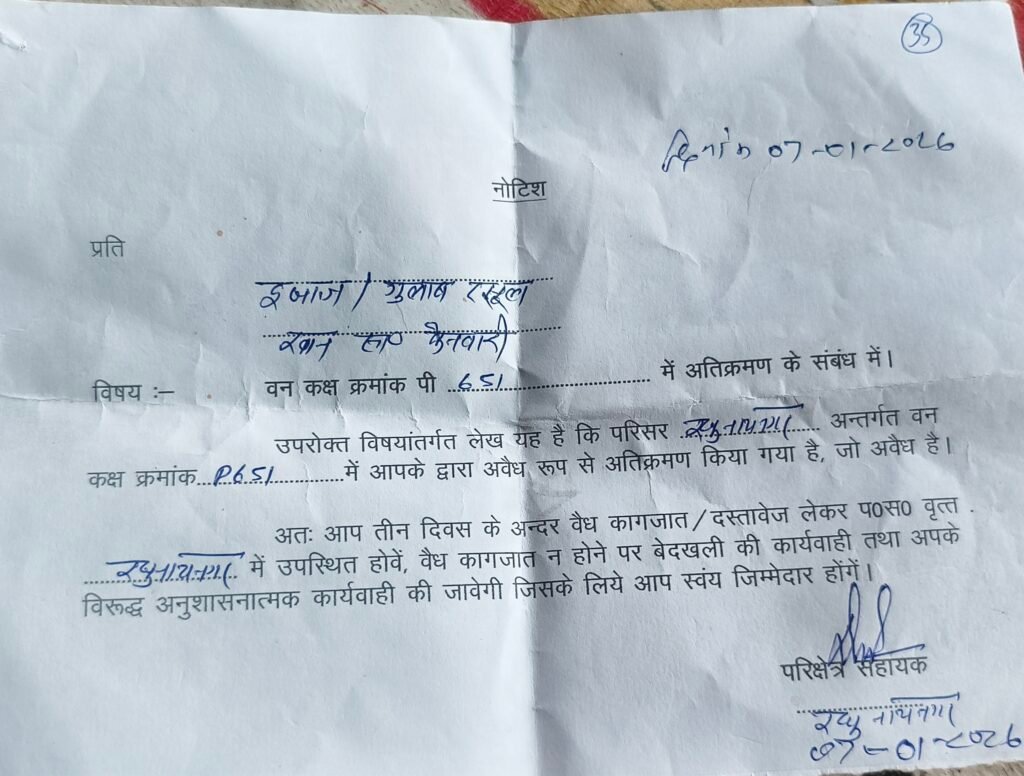 35
दिनांक 07-01-2026
नोटिश
प्रति
इबाज / गुलाब रसूल
खान सा0 कैनवारी
विषय :– वन कक्ष क्रमांक पी 651 में अतिक्रमण के संबंध में।
उपरोक्त विषयांतर्गत लेख यह है कि परिसर रघुनाथनगर अन्तर्गत वन
कक्ष क्रमांक P651 में आपके द्वारा अवैध रूप से अतिक्रमण किया गया है, जो अवैध है।
अतः आप तीन दिवस के अन्दर वैध कागजात/दस्तावेज लेकर प0स0 वृत्त
रघुनाथनगर में उपस्थित होवें, वैध कागजात न होने पर बेदखली की कार्यवाही तथा अपके
विरूद्ध अनुशासनात्मक कार्यवाही की जावेगी जिसके लिये आप स्वंय जिम्मेदार होंगें।
परिक्षेत्र सहायक
रघुनाथनगर
07-01-2026